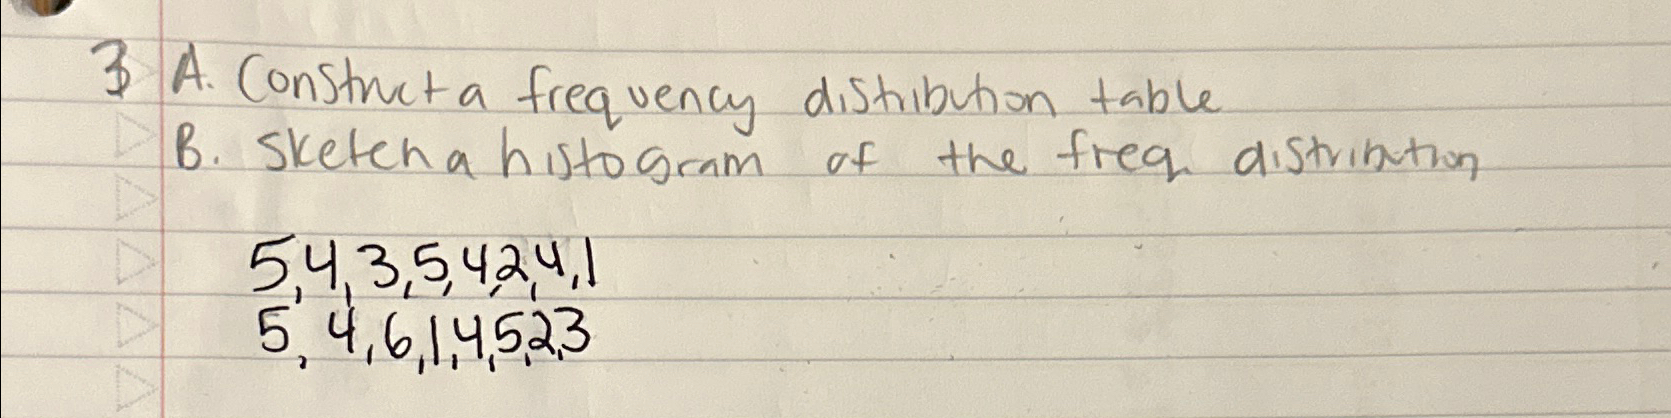 3 A. Construct a frequency distribution table
B. Sketch a histogram of the freq. distribution
5, 4, 3, 5, 4, 2, 4, 1
5, 4, 6, 1, 4, 5, 2, 3